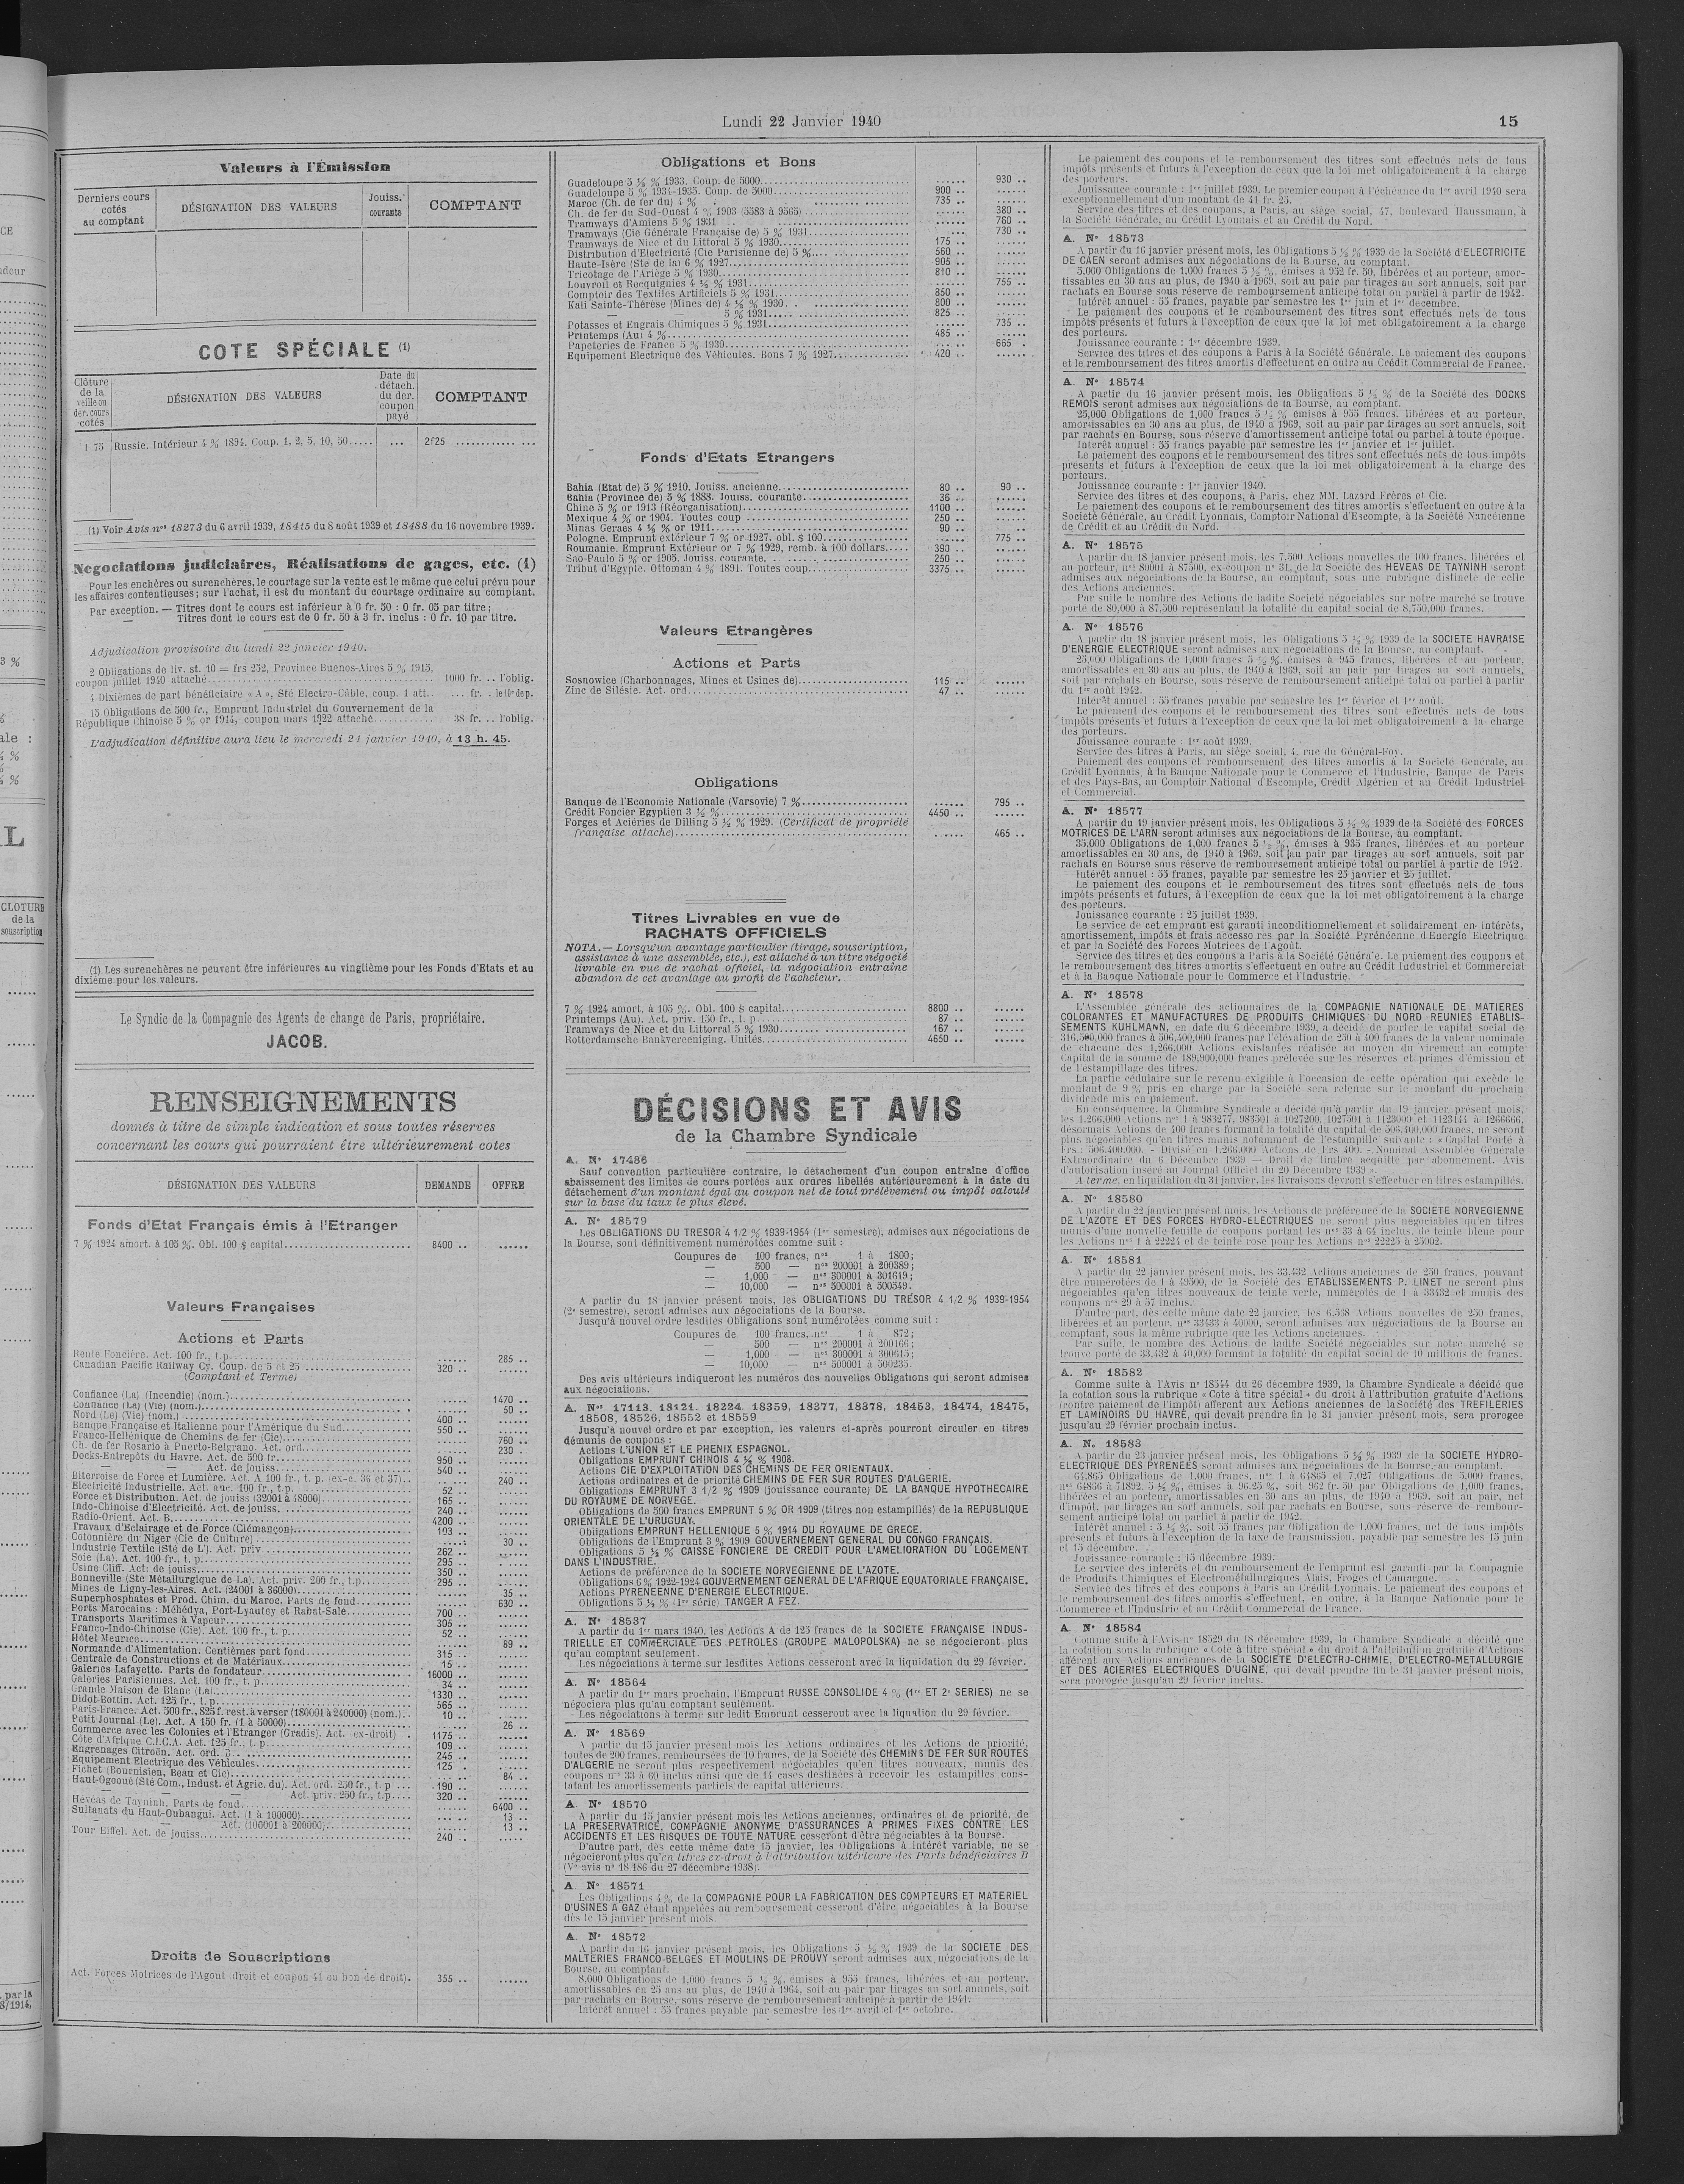 Lundi 22 Janvier 1940
15
Valeurs à l'Émission
Derniers cours cotés au comptant
DÉSIGNATION DES VALEURS
Jouiss. courante
COMPTANT
COTE SPÉCIALE (1)
Clôture de la veille ou der. cours cotés
DÉSIGNATION DES VALEURS
Date du détach. du der. coupon payé
COMPTANT
1 75 Russie. Intérieur 4 % 1894. Coup. 1, 2, 5, 10, 50..... ... 2f25 ............
(1) Voir Avis nos 18273 du 6 avril 1939, 18415 du 8 août 1939 et 18488 du 16 novembre 1939.
Négociations judiciaires, Réalisations de gages, etc. (1)
Pour les enchères ou surenchères, le courtage sur la vente est le même que celui prévu pour
les affaires contentieuses; sur l'achat, il est du montant du courtage ordinaire au comptant.
Par exception. — Titres dont le cours est inférieur à 0 fr. 50 : 0 fr. 05 par titre;
— Titres dont le cours est de 0 fr. 50 à 3 fr. inclus : 0 fr. 10 par titre.
Adjudication provisoire du lundi 22 janvier 1940.
2 Obligations de liv. st. 10 = frs 252, Province Buenos-Aires 5 % 1915,
coupon juillet 1940 attaché........ 1000 fr. .. l'oblig.
4 Dixièmes de part bénéficiaire « A », Sté Electro-Câble, coup. 1 att.. ... fr. . le 10e de p.
15 Obligations de 500 fr., Emprunt Industriel du Gouvernement de la
République Chinoise 5 % or 1914, coupon mars 1922 attaché............ 38 fr. .. l'oblig.
L'adjudication définitive aura lieu le mercredi 24 janvier 1940, à 13 h. 45.
(1) Les surenchères ne peuvent être inférieures au vingtième pour les Fonds d'Etats et au
dixième pour les valeurs.
Le Syndic de la Compagnie des Agents de change de Paris, propriétaire.
JACOB.
RENSEIGNEMENTS
donnés à titre de simple indication et sous toutes réserves
concernant les cours qui pourraient être ultérieurement cotes
DÉSIGNATION DES VALEURS
DEMANDE
OFFRE
Fonds d'Etat Français émis à l'Etranger
7 % 1924 amort. à 105 %. Obl. 100 $ capital........ 8400 .. ......
Valeurs Françaises
Actions et Parts
Rente Foncière. Act. 100 fr., t.p. ...... 285 ..
Canadian Pacific Railway Cy. Coup. de 5 et 25 ........ 320 .. ......
(Comptant et Terme)
Confiance (La) (Incendie) (nom.)........ ...... 1470 ..
Confiance (La) (Vie) (nom.)........ ...... 50 ..
Nord (Le) (Vie) (nom.)........ 400 .. ......
Banque Française et Italienne pour l'Amérique du Sud........ 550 .. ......
Franco-Hellénique de Chemins de fer (Cie)........ ...... 760 ..
Ch. de fer Rosario à Puerto-Belgrano. Act. ord........ ...... 230 ..
Docks-Entrepôts du Havre. Act. de 500 fr........ 950 .. ......
— — Act. de jouiss........ 540 .. ......
Biterroise de Force et Lumière. Act. A 100 fr., t. p. (ex-c. 36 et 37).. ...... 240 ..
Electricité Industrielle. Act. anc. 100 fr., t.p........ 52 .. ......
Force et Distribution. Act. de jouiss (32001 à 48000)........ 165 .. ......
Indo-Chinoise d'Electricité. Act. de jouiss........ 240 .. ......
Radio-Orient. Act. B........ 4200 .. ......
Travaux d'Eclairage et de Force (Clémançon)........ 103 .. ......
Cotonnière du Niger (Cie de Culture)........ ...... 30 ..
Industrie Textile (Sté de L'). Act. priv........ 262 .. ......
Soie (La). Act. 100 fr., t. p........ 295 .. ......
Usine Cliff. Act. de jouiss........ 350 .. ......
Bonneville (Sté Métallurgique de La). Act. priv. 200 fr., t.p........ 295 .. ......
Mines de Ligny-les-Aires. Act. (24001 à 36000)........ ...... 35 ..
Superphosphates et Prod. Chim. du Maroc. Parts de fond........ ...... 630 ..
Ports Marocains : Méhédya, Port-Lyautey et Rabat-Salé........ 700 .. ......
Transports Maritimes à Vapeur........ 305 .. ......
Franco-Indo-Chinoise (Cie). Act. 100 fr., t. p........ 52 .. ......
Hôtel Meurice........ ...... 89 ..
Normande d'Alimentation. Centièmes part fond........ 315 .. ......
Centrale de Constructions et de Matériaux........ 15 .. ......
Galeries Lafayette. Parts de fondateur........ 16000 .. ......
Galeries Parisiennes. Act. 100 fr., t. p........ 34 .. ......
Grande Maison de Blanc (La)........ 1330 .. ......
Didot-Bottin. Act. 125 fr., t. p........ 565 .. ......
Paris-France. Act. 500 fr., 825 f. rest. à verser (180001 à 240000) (nom.).. 10 .. ......
Petit Journal (Le). Act. A 150 fr. (1 à 50000)........ ...... 26 ..
Commerce avec les Colonies et l'Etranger (Gradis). Act. ex-droit) . 1175 .. ......
Côte d'Afrique C.I.C.A. Act. 125 fr., t. p........ 109 .. ......
Engrenages Citroën. Act. ord. 3........ 245 .. ......
Equipement Electrique des Véhicules........ 125 . ......
Fichet (Bournisien, Beau et Cie)........ ...... 84 ..
Haut-Ogooué (Sté Com., Indust. et Agric. du). Act. ord. 250 fr., t. p ... 190 .. ......
— — Act. priv. 250 fr., t.p.... 320 .. ......
Hévéas de Tayninh. Parts de fond........ ...... 6400 ..
Sultanats du Haut-Oubangui. Act. (1 à 100000)........ ...... 13 ..
— Act. (100001 à 200000)........ ...... 13 ..
Tour Eiffel. Act. de jouiss........ 240 .. ......
Droits de Souscriptions
Act. Forces Motrices de l'Agout (droit et coupon 41 ou bon de droit). 355 .. ......
Obligations et Bons
Guadeloupe 5 ½ % 1933. Coup. de 5000........ ...... 930 ..
Guadeloupe 5 % 1934-1935. Coup. de 5000........ 900 .. ......
Maroc (Ch. de fer du) 4 % ........ 735 .. ......
Ch. de fer du Sud-Ouest 4 % 1903 (5583 à 9565)........ ...... 380 ..
Tramways d'Amiens 5 % 1931........ ...... 760 ..
Tramways (Cie Générale Française de) 5 % 1931........ ... 730 ..
Tramways de Nice et du Littoral 5 % 1930........ 175 .. ......
Distribution d'Electricité (Cie Parisienne de) 5 %........ 560 .. ......
Haute-Isère (Sté de la) 6 % 1927........ 905 .. ......
Tricotage de l'Ariège 5 % 1930........ 810 .. ......
Louvroil et Recquignies 4 ½ % 1931........ ...... 755 ..
Comptoir des Textiles Artificiels 5 % 1931........ 850 .. ......
Kali Sainte-Thérèse (Mines de) 4 ½ % 1930........ 800 .. ......
— — 5 % 1931........ 825 .. ......
Potasses et Engrais Chimiques 5 % 1931........ ...... 735 ..
Printemps (Au) 4 %........ 485 .. ......
Papeteries de France 5 % 1930........ ...... 665 .
Equipement Electrique des Véhicules. Bons 7 % 1927........ 420 .. ......
Fonds d'Etats Etrangers
Bahia (Etat de) 5 % 1910. Jouiss. ancienne........ 80 .. 90 ..
Bahia (Province de) 5 % 1888. Jouiss. courante........ 36 .. ......
Chine 5 % or 1913 (Réorganisation)........ 1100 .. ......
Mexique 4 % or 1904. Toutes coup ........ 250 .. ......
Minas Geraes 4 ½ % or 1911........ 90 .. ......
Pologne. Emprunt extérieur 7 % or 1927. obl. $ 100........ ...... 775 ..
Roumanie. Emprunt Extérieur or 7 % 1929, remb. à 100 dollars..... 390 .. ......
Sao-Paulo 5 % or 1905. Jouiss. courante........ 250 .. ......
Tribut d'Egypte. Ottoman 4 % 1891. Toutes coup........ 3375 .. ......
Valeurs Etrangères
Actions et Parts
Sosnowice (Charbonnages, Mines et Usines de)........ 115 .. ......
Zinc de Silésie. Act. ord........ 47 .. ......
Obligations
Banque de l'Economie Nationale (Varsovie) 7 %........ ...... 795 ..
Crédit Foncier Egyptien 3 ½ %........ 4450 .. ......
Forges et Aciéries de Dilling 5 ½ % 1929. (Certificat de propriété
française attaché)........ ...... 465 ..
Titres Livrables en vue de
RACHATS OFFICIELS
NOTA. — Lorsqu'un avantage particulier (tirage, souscription,
assistance à une assemblée, etc.), est attaché à un titre négocié
livrable en vue de rachat officiel, la négociation entraîne
abandon de cet avantage au profit de l'acheteur.
7 % 1924 amort. à 105 %. Obl. 100 $ capital........ 8800 .. ......
Printemps (Au). Act. priv. 150 fr., t. p........ 87 .. ......
Tramways de Nice et du Littorral 5 % 1930........ 167 .. ......
Rotterdamsche Bankvereeniging. Unités........ 4650 .. ......
DÉCISIONS ET AVIS
de la Chambre Syndicale
A. N° 17486
Sauf convention particulière contraire, le détachement d'un coupon entraîne d'office
abaissement des limites de cours portées aux ordres libellés antérieurement à la date du
détachement d'un montant égal au coupon net de tout prélèvement ou impôt calculé
sur la base du taux le plus élevé.
A. N° 18579
Les OBLIGATIONS DU TRESOR 4 1/2 % 1939-1954 (1er semestre), admises aux négociations de
la Bourse, sont définitivement numérotées comme suit :
Coupures de 100 francs, nos 1 à 1800;
— 500 — nos 200001 à 200389;
— 1,000 — nos 300001 à 301619;
— 10,000 — nos 500001 à 500549.
A partir du 18 janvier présent mois, les OBLIGATIONS DU TRÉSOR 4 1/2 % 1939-1954
(2e semestre), seront admises aux négociations de la Bourse.
Jusqu'à nouvel ordre lesdites Obligations sont numérotées comme suit :
Coupures de 100 francs, nos 1 à 872;
— 500 — nos 200001 à 200166;
— 1,000 — nos 300001 à 300615;
— 10,000 — nos 500001 à 500235.
Des avis ultérieurs indiqueront les numéros des nouvelles Obligations qui seront admises
aux négociations.
A. Nos 17118, 18121, 18224, 18359, 18377, 18378, 18453, 18474, 18475,
18508, 18526, 18552 et 18559
Jusqu'à nouvel ordre et par exception, les valeurs ci-après pourront circuler en titres
démunis de coupons :
Actions L'UNION ET LE PHENIX ESPAGNOL.
Obligations EMPRUNT CHINOIS 4 ½ % 1908.
Actions CIE D'EXPLOITATION DES CHEMINS DE FER ORIENTAUX.
Actions ordinaires et de priorité CHEMINS DE FER SUR ROUTES D'ALGERIE.
Obligations EMPRUNT 3 1/2 % 1909 (jouissance courante) DE LA BANQUE HYPOTHECAIRE
DU ROYAUME DE NORVEGE.
Obligations de 500 francs EMPRUNT 5 % OR 1909 (titres non estampillés) de la REPUBLIQUE
ORIENTALE DE L'URUGUAY.
Obligations EMPRUNT HELLENIQUE 5 % 1914 DU ROYAUME DE GRECE.
Obligations de l'Emprunt 3 % 1909 GOUVERNEMENT GENERAL DU CONGO FRANÇAIS.
Obligations 5 ½ % CAISSE FONCIERE DE CREDIT POUR L'AMELIORATION DU LOGEMENT
DANS L'INDUSTRIE.
Actions de préférence de la SOCIETE NORVEGIENNE DE L'AZOTE.
Obligations 6 % 1922-1924 GOUVERNEMENT GENERAL DE L'AFRIQUE EQUATORIALE FRANÇAISE.
Actions PYRENEENNE D'ENERGIE ELECTRIQUE.
Obligations 5 ½ % (1re série) TANGER A FEZ.
A. N° 18537
A partir du 1er mars 1940, les Actions A de 125 francs de la SOCIETE FRANÇAISE INDUS-
TRIELLE ET COMMERCIALE DES PETROLES (GROUPE MALOPOLSKA) ne se négocieront plus
qu'au comptant seulement.
Les négociations à terme sur lesdites Actions cesseront avec la liquidation du 29 février.
A. N° 18564
A partir du 1er mars prochain, l'Emprunt RUSSE CONSOLIDE 4 % (1re ET 2e SERIES) ne se
négociera plus qu'au comptant seulement.
Les négociations à terme sur ledit Emprunt cesseront avec la liquation du 29 février.
A. N° 18569
A partir du 15 janvier présent mois les Actions ordinaires et les Actions de priorité,
toutes de 200 francs, remboursées de 10 francs, de la Société des CHEMINS DE FER SUR ROUTES
D'ALGERIE ne seront plus respectivement négociables qu'en titres nouveaux, munis des
coupons nos 33 à 60 inclus ainsi que de 14 cases destinées à recevoir les estampilles cons-
tatant les amortissements partiels de capital ultérieurs.
A. N° 18570
A partir du 15 janvier présent mois les Actions anciennes, ordinaires et de priorité, de
LA PRESERVATRICE, COMPAGNIE ANONYME D'ASSURANCES A PRIMES FIXES CONTRE LES
ACCIDENTS ET LES RISQUES DE TOUTE NATURE cesseront d'être négociables à la Bourse.
D'autre part, dès cette même date 15 janvier, les Obligations à intérêt variable, ne se
négocieront plus qu'en titres ex-droit à l'attribution ultérieure des Parts bénéficiaires B
(Ve avis n° 18186 du 27 décembre 1938).
A. N° 18571
Les Obligations 4 % de la COMPAGNIE POUR LA FABRICATION DES COMPTEURS ET MATERIEL
D'USINES A GAZ étant appelées au remboursement cesseront d'être négociables à la Bourse
dès le 15 janvier présent mois.
A. N° 18572
A partir du 16 janvier présent mois, les Obligations 5 ½ % 1939 de la SOCIETE DES
MALTERIES FRANCO-BELGES ET MOULINS DE PROUVY seront admises aux négociations de la
Bourse, au comptant.
8,000 Obligations de 1,000 francs 5 ½ %, émises à 955 francs, libérées et au porteur,
amortissables en 25 ans au plus, de 1940 à 1964, soit au pair par tirages au sort annuels, soit
par rachats en Bourse, sous réserve de remboursement anticipé à partir de 1941.
Intérêt annuel : 55 francs payable par semestre les 1er avril et 1er octobre.
Le paiement des coupons et le remboursement des titres sont effectués nets de tous
impôts présents et futurs à l'exception de ceux que la loi met obligatoirement à la charge
des porteurs.
Jouissance courante : 1er juillet 1939. Le premier coupon à l'échéance du 1er avril 1940 sera
exceptionnellement d'un montant de 41 fr. 25.
Service des titres et des coupons, à Paris, au siège social, 47, boulevard Haussmann, à
la Société Générale, au Crédit Lyonnais et au Crédit du Nord.
A. N° 18573
A partir du 16 janvier présent mois, les Obligations 5 ½ % 1939 de la Société d'ELECTRICITE
DE CAEN seront admises aux négociations de la Bourse, au comptant.
5,000 Obligations de 1,000 francs 5 ½ %, émises à 952 fr. 50, libérées et au porteur, amor-
tissables en 30 ans au plus, de 1940 à 1969, soit au pair par tirages au sort annuels, soit par
rachats en Bourse sous réserve de remboursement anticipé total ou partiel à partir de 1942.
Intérêt annuel : 55 francs, payable par semestre les 1er juin et 1er décembre.
Le paiement des coupons et le remboursement des titres sont effectués nets de tous
impôts présents et futurs à l'exception de ceux que la loi met obligatoirement à la charge
des porteurs.
Jouissance courante : 1er décembre 1939.
Service des titres et des coupons à Paris à la Société Générale. Le paiement des coupons
et le remboursement des titres amortis d'effectuent en outre au Crédit Commercial de France.
A. N° 18574
A partir du 16 janvier présent mois, les Obligations 5 ½ % de la Société des DOCKS
REMOIS seront admises aux négociations de la Bourse, au comptant.
25,000 Obligations de 1,000 francs 5 ½ % émises à 955 francs, libérées et au porteur,
amortissables en 30 ans au plus, de 1940 à 1969, soit au pair par tirages au sort annuels, soit
par rachats en Bourse, sous réserve d'amortissement anticipé total ou partiel à toute époque.
Intérêt annuel : 55 francs payable par semestre les 1er janvier et 1er juillet.
Le paiement des coupons et le remboursement des titres sont effectués nets de tous impôts
présents et futurs à l'exception de ceux que la loi met obligatoirement à la charge des
porteurs.
Jouissance courante : 1er janvier 1940.
Service des titres et des coupons, à Paris, chez MM. Lazard Frères et Cie.
Le paiement des coupons et le remboursement des titres amortis s'effectuent en outre à la
Société Générale, au Crédit Lyonnais, Comptoir National d'Escompte, à la Société Nancéienne
de Crédit et au Crédit du Nord.
A. N° 18575
A partir du 18 janvier présent mois, les 7.500 Actions nouvelles de 100 francs, libérées et
au porteur, nos 80001 à 87500, ex-coupon n° 31, de la Société des HEVEAS DE TAYNINH seront
admises aux négociations de la Bourse, au comptant, sous une rubrique distincte de celle
des Actions anciennes.
Par suite le nombre des Actions de ladite Société négociables sur notre marché se trouve
porté de 80,000 à 87,500 représentant la totalité du capital social de 8,750,000 francs.
A. N° 18576
A partir du 18 janvier présent mois, les Obligations 5 ½ % 1939 de la SOCIETE HAVRAISE
D'ENERGIE ELECTRIQUE seront admises aux négociations de la Bourse, au comptant.
25,000 Obligations de 1,000 francs 5 ½ %, émises à 945 francs, libérées et au porteur,
amortissables en 30 ans au plus, de 1940 à 1969, soit au pair par tirages au sort annuels,
soit par rachats en Bourse, sous réserve de remboursement anticipé total ou partiel à partir
du 1er août 1942.
Intérêt annuel : 55 francs payable par semestre les 1er février et 1er août.
Le paiement des coupons et le remboursement des titres sont effectués nets de tous
impôts présents et futurs à l'exception de ceux que la loi met obligatoirement à la charge
des porteurs.
Jouissance courante : 1er août 1939.
Service des titres à Paris, au siège social, 4, rue du Général-Foy.
Paiement des coupons et remboursement des titres amortis à la Société Générale, au
Crédit Lyonnais, à la Banque Nationale pour le Commerce et l'Industrie, Banque de Paris
et des Pays-Bas, au Comptoir National d'Escompte, Crédit Algérien et au Crédit Industriel
et Commercial.
A. N° 18577
A partir du 19 janvier présent mois, les Obligations 5 ½ % 1939 de la Société des FORCES
MOTRICES DE L'ARN seront admises aux négociations de la Bourse, au comptant.
35,000 Obligations de 1,000 francs 5 ½ %, émises à 935 francs, libérées et au porteur
amortissables en 30 ans, de 1940 à 1969, soit au pair par tirages au sort annuels, soit par
rachats en Bourse sous réserve de remboursement anticipé total ou partiel à partir de 1942.
Intérêt annuel : 55 francs, payable par semestre les 25 janvier et 25 juillet.
Le paiement des coupons et le remboursement des titres sont effectués nets de tous
impôts présents et futurs, à l'exception de ceux que la loi met obligatoirement à la charge
des porteurs.
Jouissance courante : 25 juillet 1939.
Le service de cet emprunt est garanti inconditionnellement et solidairement en intérêts,
amortissement, impôts et frais accessoires par la Société Pyrénéenne d'Energie Electrique
et par la Société des Forces Motrices de l'Agoût.
Service des titres et des coupons à Paris à la Société Générale. Le paiement des coupons et
le remboursement des titres amortis s'effectuent en outre au Crédit Industriel et Commercial
et à la Banque Nationale pour le Commerce et l'Industrie.
A. N° 18578
L'Assemblée générale des actionnaires de la COMPAGNIE NATIONALE DE MATIERES
COLORANTES ET MANUFACTURES DE PRODUITS CHIMIQUES DU NORD REUNIES ETABLIS-
SEMENTS KUHLMANN, en date du 6 décembre 1939, a décidé de porter le capital social de
316,500,000 francs à 506,400,000 francs par l'élévation de 250 à 400 francs de la valeur nominale
de chacune des 1,266,000 Actions existantes réalisée au moyen du virement au compte
Capital de la somme de 189,900,000 francs prélevée sur les réserves et primes d'émission et
de l'estampillage des titres.
La partie cédulaire sur le revenu exigible à l'occasion de cette opération qui excède le
montant de 9 % pris en charge par la Société sera retenue sur le montant du prochain
dividende mis en paiement.
En conséquence, la Chambre Syndicale a décidé qu'à partir du 19 janvier présent mois,
les 1,266,000 Actions nos 1 à 983277, 983501 à 1027200, 1027501 à 1123000 et 1123444 à 1266666,
désormais Actions de 400 francs formant la totalité du capital de 506,400,000 francs, ne seront
plus négociables qu'en titres munis notamment de l'estampille suivante : « Capital Porté à
Frs : 506.400.000. - Divisé en 1.266.000 Actions de Frs 400. - Nominal Assemblée Générale
Extraordinaire du 6 Décembre 1939 — Droit de timbre acquitté par abonnement. Avis
d'autorisation inséré au Journal Officiel du 20 Décembre 1939 ».
A terme, en liquidation du 31 janvier, les livraisons devront s'effectuer en titres estampillés.
A. N° 18580
A partir du 22 janvier présent mois, les Actions de préférence de la SOCIETE NORVEGIENNE
DE L'AZOTE ET DES FORCES HYDRO-ELECTRIQUES ne seront plus négociables qu'en titres
munis d'une nouvelle feuille de coupons portant les nos 33 à 64 inclus, de teinte bleue pour
les Actions nos 1 à 22224 et de teinte rose pour les Actions nos 22225 à 25002.
A. N° 18581
A partir du 22 janvier présent mois, les 33.432 Actions anciennes de 250 francs, pouvant
être numérotées de 1 à 49500, de la Société des ETABLISSEMENTS P. LINET ne seront plus
négociables qu'en titres nouveaux de teinte verte, numérotés de 1 à 33432 et munis des
coupons nos 29 à 57 inclus.
D'autre part, dès cette même date 22 janvier, les 6.568 Actions nouvelles de 250 francs,
libérées et au porteur, nos 33433 à 40000, seront admises aux négociations de la Bourse au
comptant, sous la même rubrique que les Actions anciennes.
Par suite, le nombre des Actions de ladite Société négociables sur notre marché se
trouve porté de 33,432 à 40,000 formant la totalité du capital social de 10 millions de francs.
A. N° 18582
Comme suite à l'Avis n° 18544 du 26 décembre 1939, la Chambre Syndicale a décidé que
la cotation sous la rubrique « Cote à titre spécial » du droit à l'attribution gratuite d'Actions
(contre paiement de l'impôt) afférent aux Actions anciennes de la Société des TREFILERIES
ET LAMINOIRS DU HAVRE, qui devait prendre fin le 31 janvier présent mois, sera prorogee
jusqu'au 29 février prochain inclus.
A. N. 18583
A partir du 23 janvier présent mois, les Obligations 5 ½ % 1939 de la SOCIETE HYDRO-
ELECTRIQUE DES PYRENEES seront admises aux négociations de la Bourse, au comptant.
64,865 Obligations de 1,000 francs, nos 1 à 64865 et 7,027 Obligations de 5,000 francs,
nos 64866 à 71892, 5 ½ %, émises à 96.25 %, soit 962 fr. 50 par Obligations de 1,000 francs,
libérées et au porteur, amortissables en 30 ans au plus, de 1940 à 1969, soit au pair, net
d'impôt, par tirages au sort annuels, soit par rachats en Bourse, sous réserve de rembour-
sement anticipé total ou partiel à partir de 1942.
Intérêt annuel : 5 ½ %, soit 55 francs par Obligation de 1,000 francs, net de tous impôts
présents et futurs à l'exception de la taxe de transmission, payable par semestre les 15 juin
et 15 décembre.
Jouissance courante : 15 décembre 1939.
Le service des intérêts et du remboursement de l'emprunt est garanti par la Compagnie
de Produits Chimiques et Electrométallurgiques Alais, Froges et Camargue.
Service des titres et des coupons à Paris au Crédit Lyonnais. Le paiement des coupons et
le remboursement des titres amortis s'effectuent, en outre, à la Banque Nationale pour le
Commerce et l'Industrie et au Crédit Commercial de France.
A. N° 18584
Comme suite à l'Avis n° 18529 du 18 décembre 1939, la Chambre Syndicale a décidé que
la cotation sous la rubrique « Cote à titre spécial » du droit à l'attribution gratuite d'Actions
afférent aux Actions anciennes de la SOCIETE D'ELECTRO-CHIMIE, D'ELECTRO-METALLURGIE
ET DES ACIERIES ELECTRIQUES D'UGINE, qui devait prendre fin le 31 janvier présent mois,
sera prorogée jusqu'au 29 février inclus.